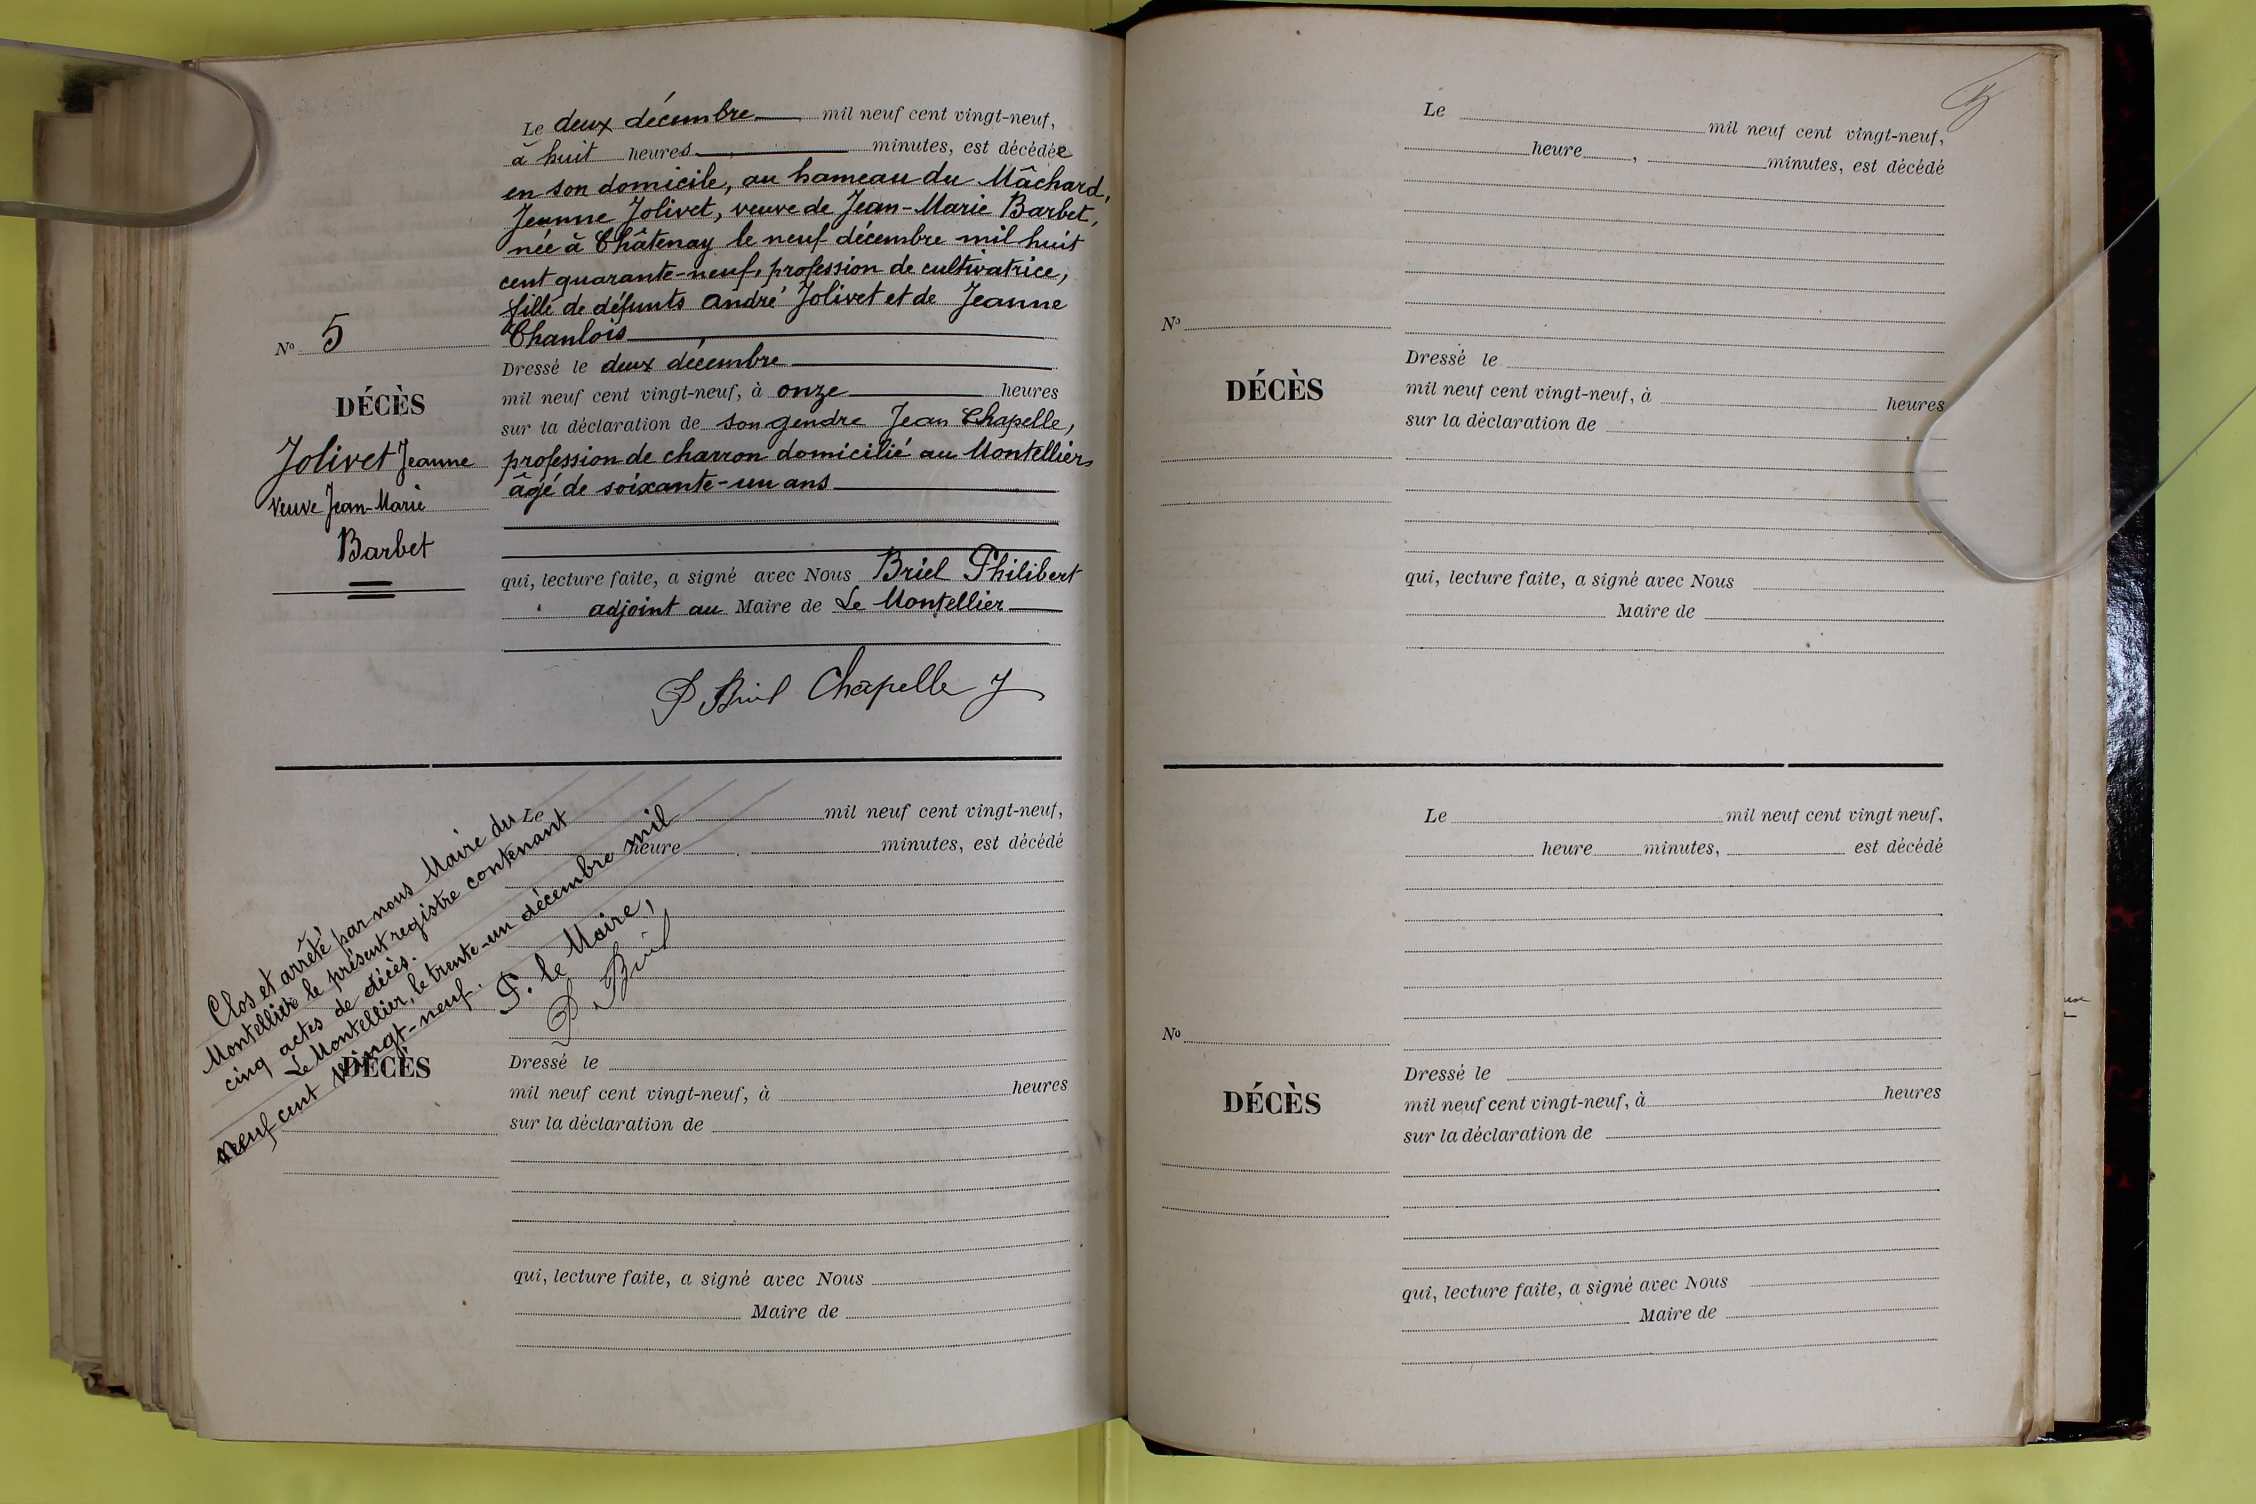 Le deux décembre mil neuf cent vingt-neuf,
à huit heures minutes, est décédée
en son domicile, au hameau du Mâchard,
Jeanne Jolivet, veuve de Jean-Marie Barbet,
née à Châtenay le neuf décembre mil huit
cent quarante-neuf, profession de cultivatrice,
fille de défunts André Jolivet et de Jeanne
Chanlois
Nº 5
DÉCÈS
Jolivet Jeanne
Veuve Jean-Marie
Barbet
Dressé le deux décembre
mil neuf cent vingt-neuf, à onze heures
sur la déclaration de son gendre Jean Chapelle,
profession de charron domicilié au Montellier,
âgé de soixante-un ans
qui, lecture faite, a signé avec Nous Briel Philibert
adjoint au Maire de Le Montellier
P Briel Chapelle J
Le mil neuf cent vingt-neuf,
heure , minutes, est décédé
Clos et arrêté par nous Maire du
Montellier le présent registre contenant
cinq actes de décès.
Le Montellier, le trente-un décembre mil
neuf cent vingt-neuf.
P. le Maire,
P Briel
DÉCÈS
Dressé le
mil neuf cent vingt-neuf, à heures
sur la déclaration de
qui, lecture faite, a signé avec Nous
Maire de
Le mil neuf cent vingt-neuf,
heure , minutes, est décédé
Nº
DÉCÈS
Dressé le
mil neuf cent vingt-neuf, à heures
sur la déclaration de
qui, lecture faite, a signé avec Nous
Maire de
Le mil neuf cent vingt neuf,
heure minutes, est décédé
Nº
DÉCÈS
Dressé le
mil neuf cent vingt-neuf, à heures
sur la déclaration de
qui, lecture faite, a signé avec Nous
Maire de